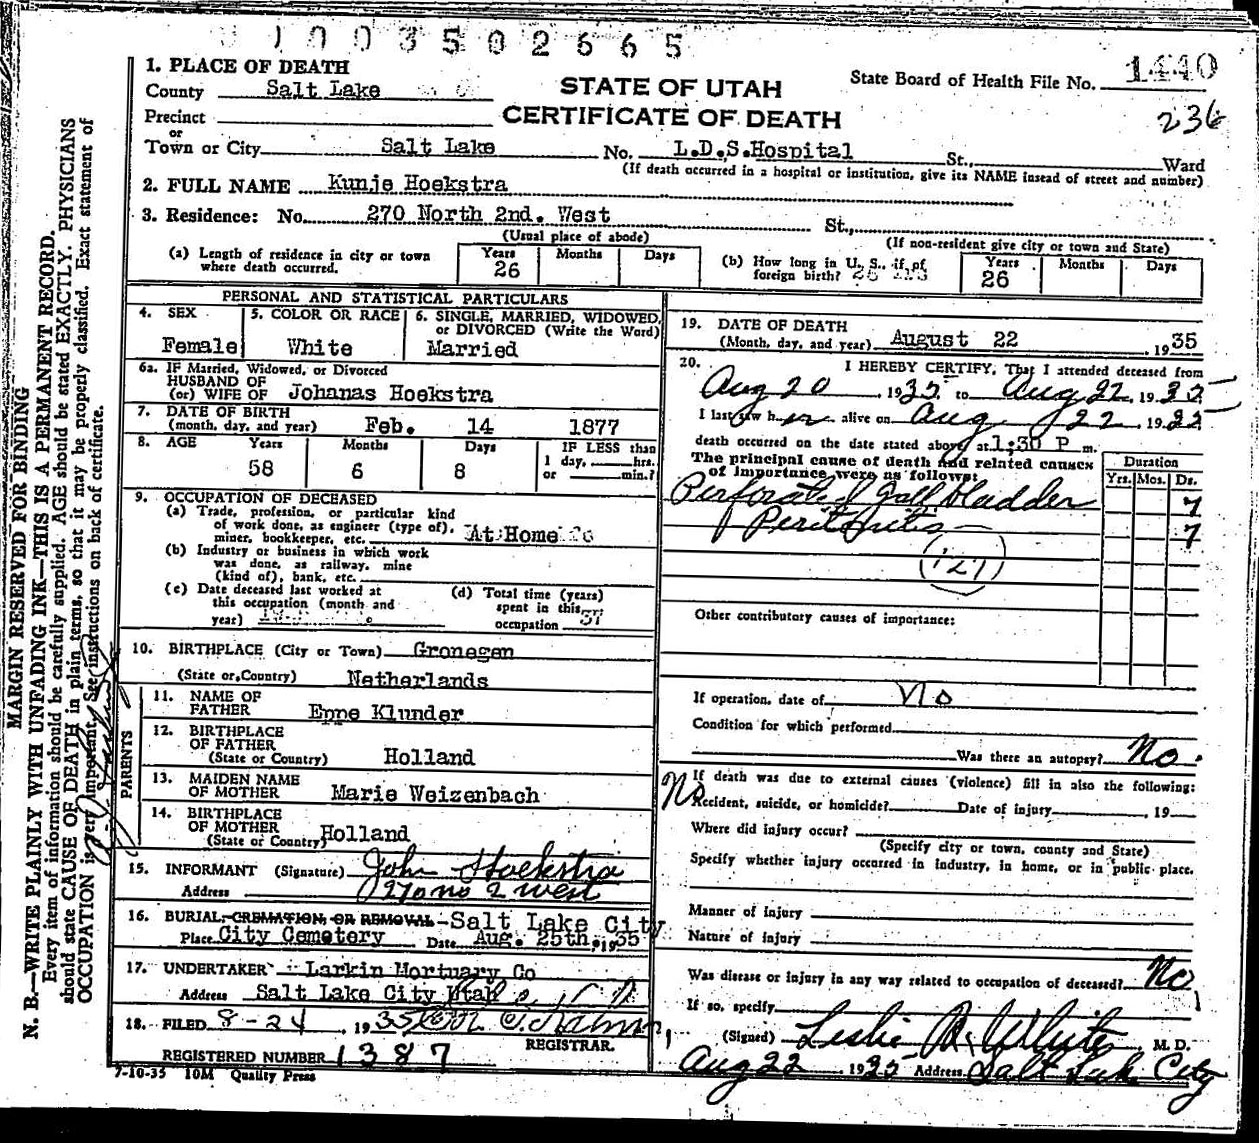 1003502665
1. PLACE OF DEATH
County Salt Lake
STATE OF UTAH
CERTIFICATE OF DEATH
State Board of Health File No. 1440
236
Precinct
or
Town or City Salt Lake No. L.D.S.Hospital St., Ward
(If death occurred in a hospital or institution, give its NAME insead of street and number)
2. FULL NAME Kunje Hoekstra
3. Residence: No. 270 North 2nd. West St.,
(Usual place of abode)
(If non-resident give city or town and State)
(a) Length of residence in city or town where death occurred. Years 26 Months Days
(b) How long in U. S., if of foreign birth? 26 yrs Years 26 Months Days
PERSONAL AND STATISTICAL PARTICULARS
4. SEX Female
5. COLOR OR RACE White
6. SINGLE, MARRIED, WIDOWED, or DIVORCED (Write the Word) Married
6a. IF Married, Widowed, or Divorced
HUSBAND OF
(or) WIFE OF Johanas Hoekstra
7. DATE OF BIRTH
(month, day, and year) Feb. 14 1877
8. AGE Years 58 Months 6 Days 8
IF LESS than
1 day, hrs.
or min.?
9. OCCUPATION OF DECEASED
(a) Trade, profession, or particular kind
of work done, as engineer (type of),
miner, bookkeeper, etc. At Home
(b) Industry or business in which work
was done, as railway, mine
(kind of), bank, etc.
(c) Date deceased last worked at
this occupation (month and
year)
(d) Total time (years)
spent in this
occupation 37
10. BIRTHPLACE (City or Town) Gronegen
(State or Country) Netherlands
PARENTS
11. NAME OF
FATHER Eppe Klunder
12. BIRTHPLACE
OF FATHER
(State or Country) Holland
13. MAIDEN NAME
OF MOTHER Marie Weizenbach
14. BIRTHPLACE
OF MOTHER
(State or Country) Holland
15. INFORMANT (Signature) John Hoekstra
Address 270 no 2 west
16. BURIAL, CREMATION, OR REMOVAL Salt Lake City
Place City Cemetery Date Aug. 25th, 1935
17. UNDERTAKER Larkin Mortuary Co
Address Salt Lake City Utah
18. FILED 8-24, 1935
REGISTRAR.
REGISTERED NUMBER 1387
7-10-35 10M Quality Press
19. DATE OF DEATH
(Month, day, and year) August 22, 1935
20. I HEREBY CERTIFY, That I attended deceased from
Aug 20, 1935, to Aug 22, 1935
I last saw her alive on Aug 22, 1935
death occurred on the date stated above at 1;30 P m.
The principal cause of death and related causes
of importance were as follows:
Duration
Yrs. Mos. Ds.
Perforated Gall bladder 7
Peritonitis 7
(127)
Other contributory causes of importance:
If operation, date of No
Condition for which performed
Was there an autopsy? No.
No
If death was due to external causes (violence) fill in also the following:
Accident, suicide, or homicide? Date of injury 19
Where did injury occur?
(Specify city or town, county and State)
Specify whether injury occurred in industry, in home, or in public place.
Manner of injury
Nature of injury
Was disease or injury in any way related to occupation of deceased? No
If so, specify
(Signed) Leslie A. White M. D.
Aug 22 1935 Address Salt Lake City
MARGIN RESERVED FOR BINDING
N. B.—WRITE PLAINLY WITH UNFADING INK—THIS IS A PERMANENT RECORD.
Every item of information should be carefully supplied. AGE should be stated EXACTLY. PHYSICIANS
should state CAUSE OF DEATH in plain terms, so that it may be properly classified. Exact statement of
OCCUPATION is very important. See instructions on back of certificate.